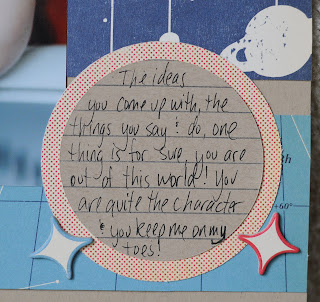 The ideas
you come up with, the
things you say & do, one
thing is for sure, you are
out of this world! You
are quite the character
& you keep me on my
toes!
th
60°